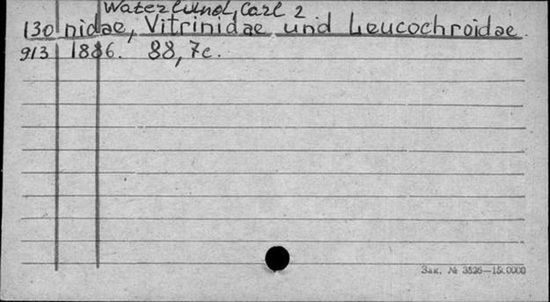 Waterlund, Carl 2
130 nidae, Vitrinidae und Leucochroidae.
913 1886. 88, 7c.
Зак. № 3526—15.0000